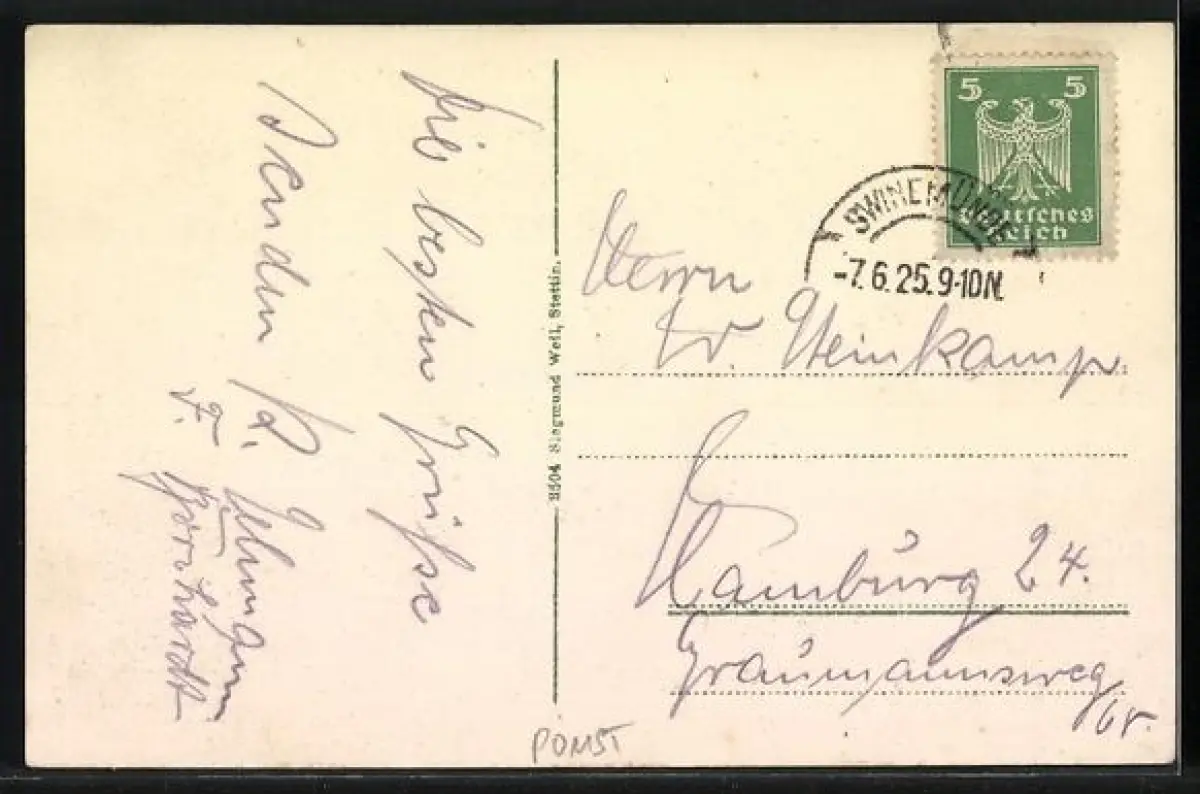 besten Grüsse
senden
F. Borchardt
8504 Siegmund Weil, Stettin.
5 5
Deutsches
Reich
SWINEMÜNDE
-7.6.25.9-10N.
Herrn
W. Steinkamp.
Hamburg 24.
Graumannsweg
POMST